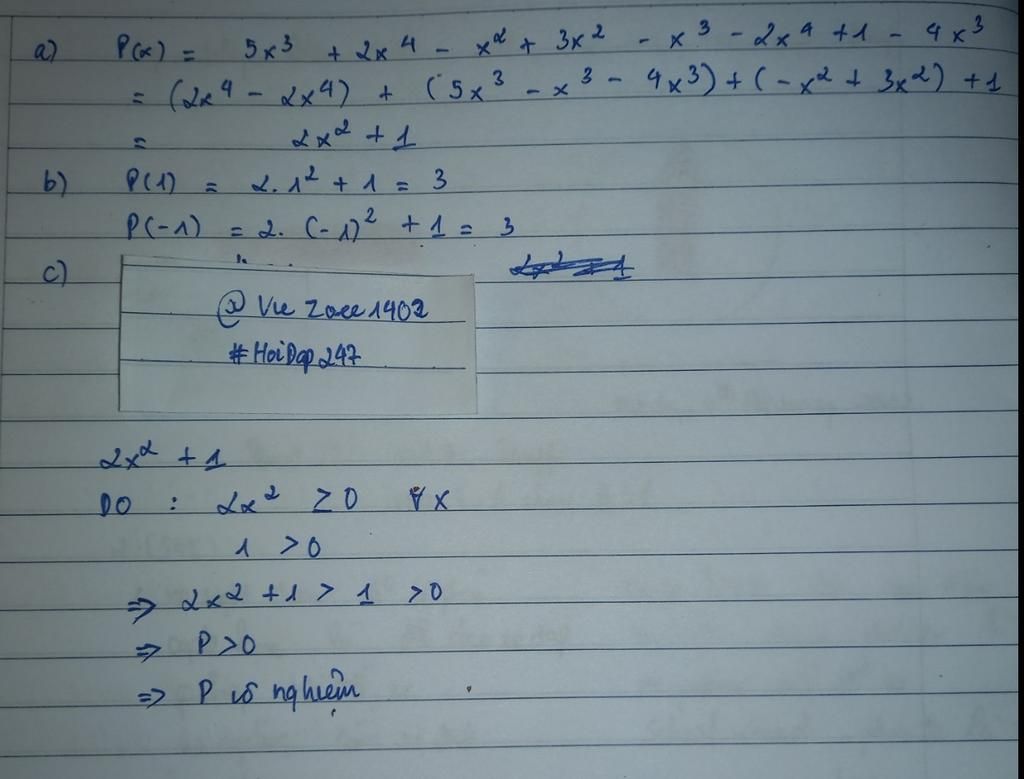 a) P(x) = 5x³ + 2x⁴ - x² + 3x² - x³ - 2x⁴ + 1 - 4x³
= (2x⁴ - 2x⁴) + (5x³ - x³ - 4x³) + (-x² + 3x²) + 1
= 2x² + 1
b) P(1) = 2.1² + 1 = 3
P(-1) = 2. (-1)² + 1 = 3
c)
@ Vie Zoee1402
#HoiDap247
2x² + 1
DO : 2x² ≥ 0 ∀x
1 > 0
=> 2x² + 1 > 1 > 0
=> P > 0
=> P vô nghiệm